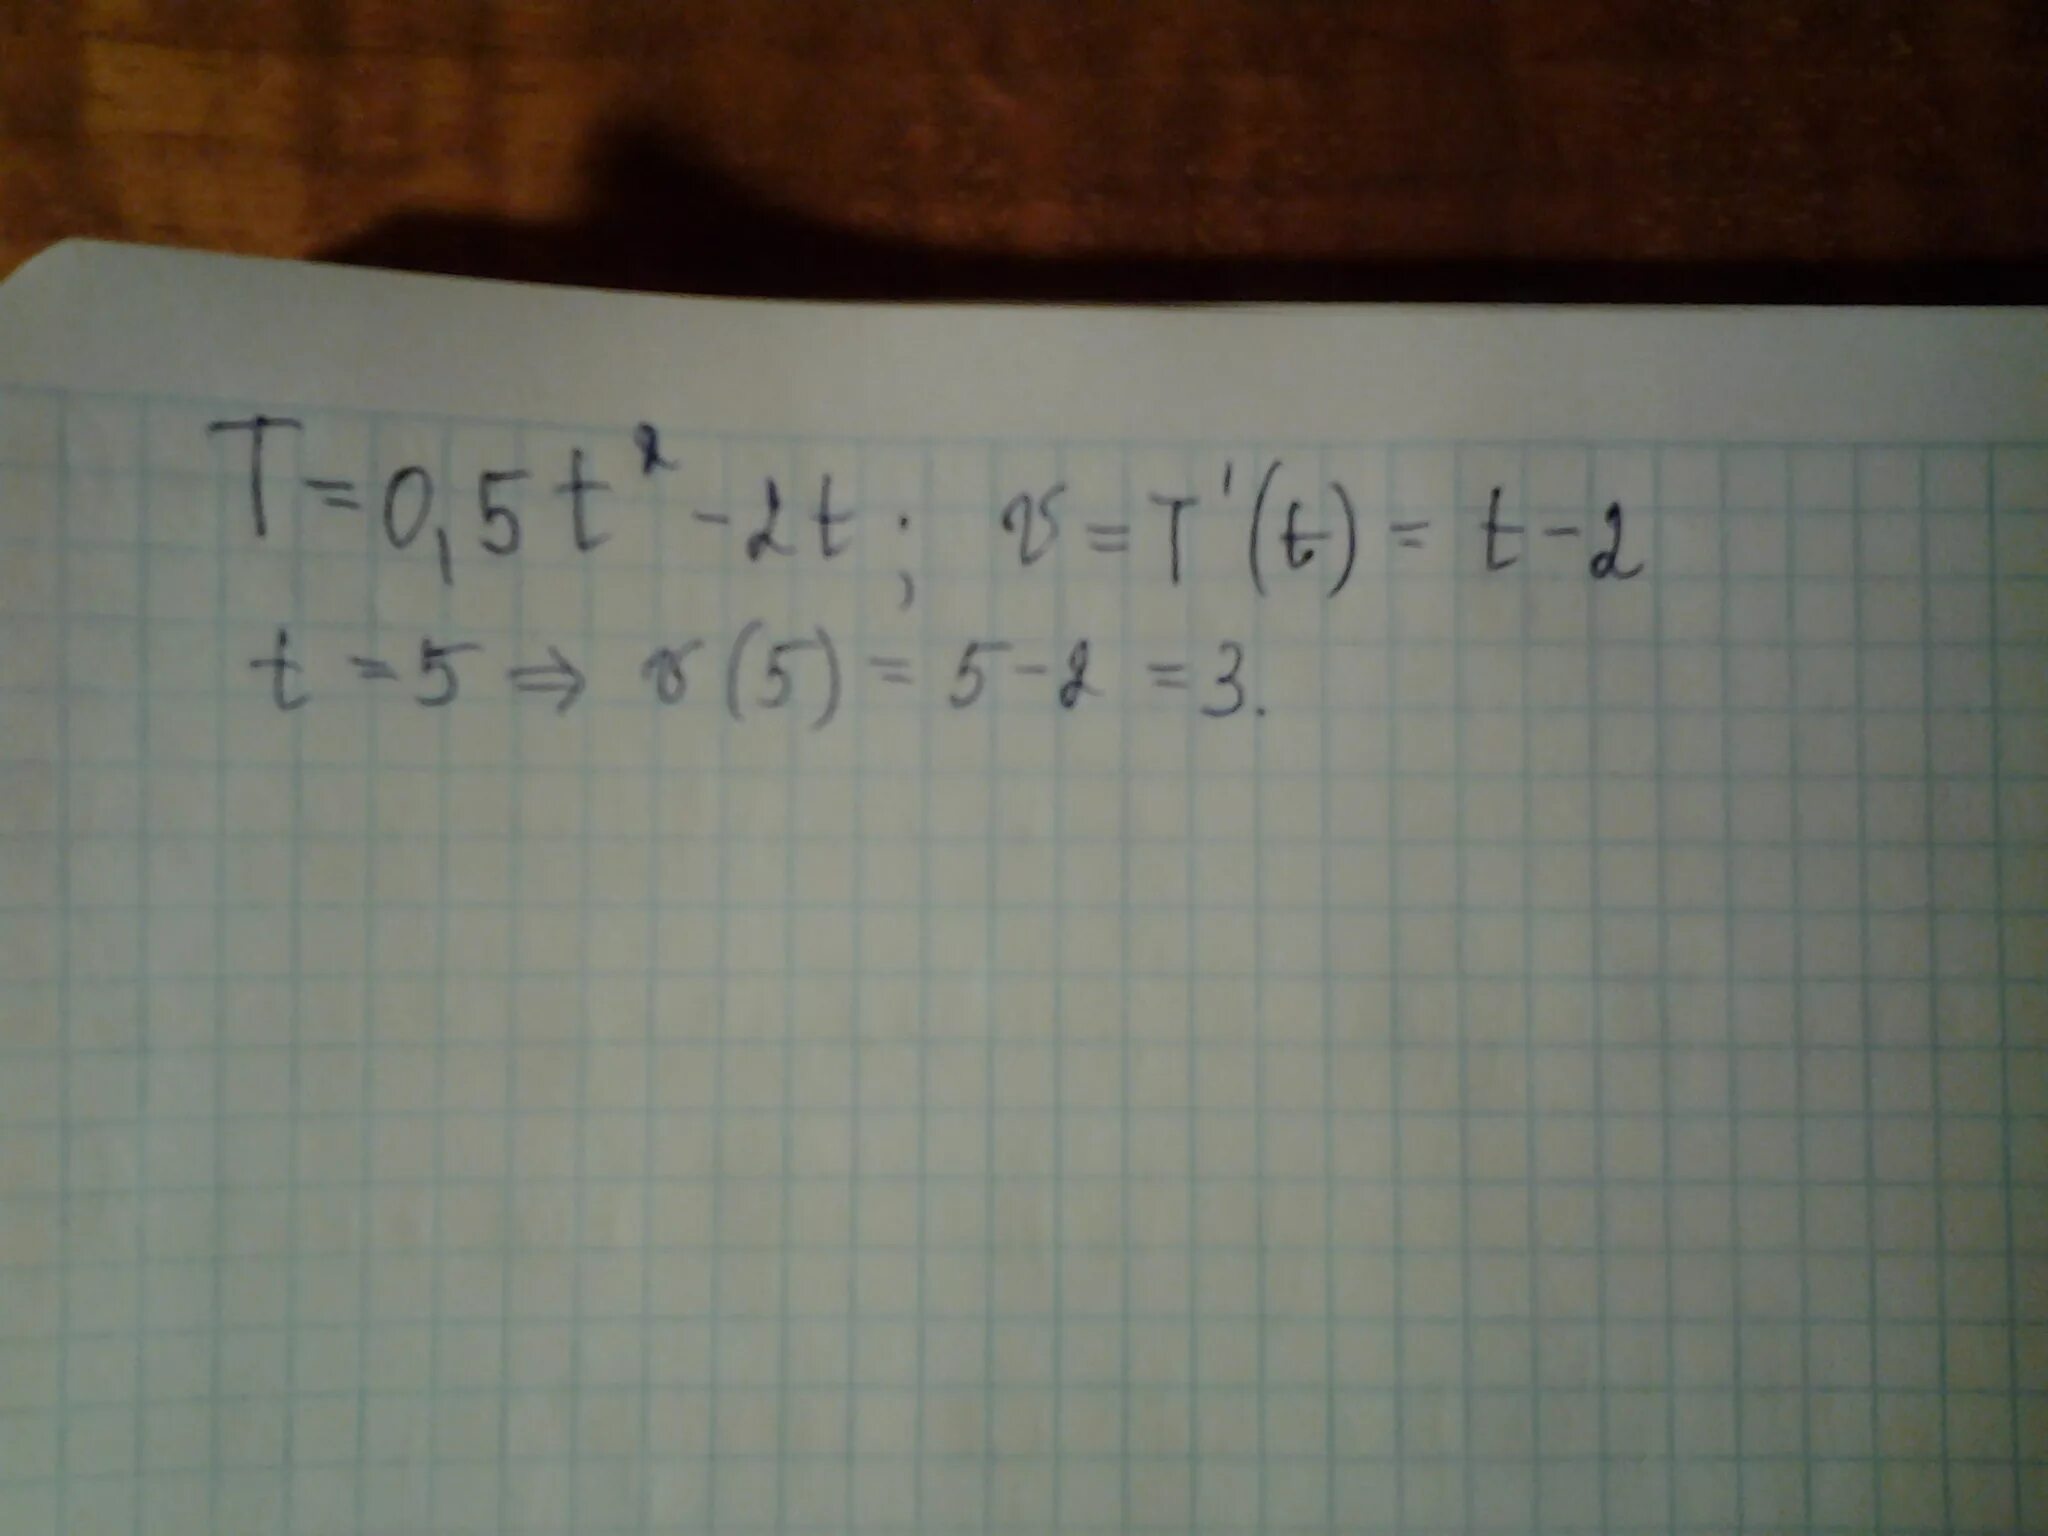 T=0,5t²-2t; v=T'(t)=t-2
t=5⇒v(5)=5-2=3.